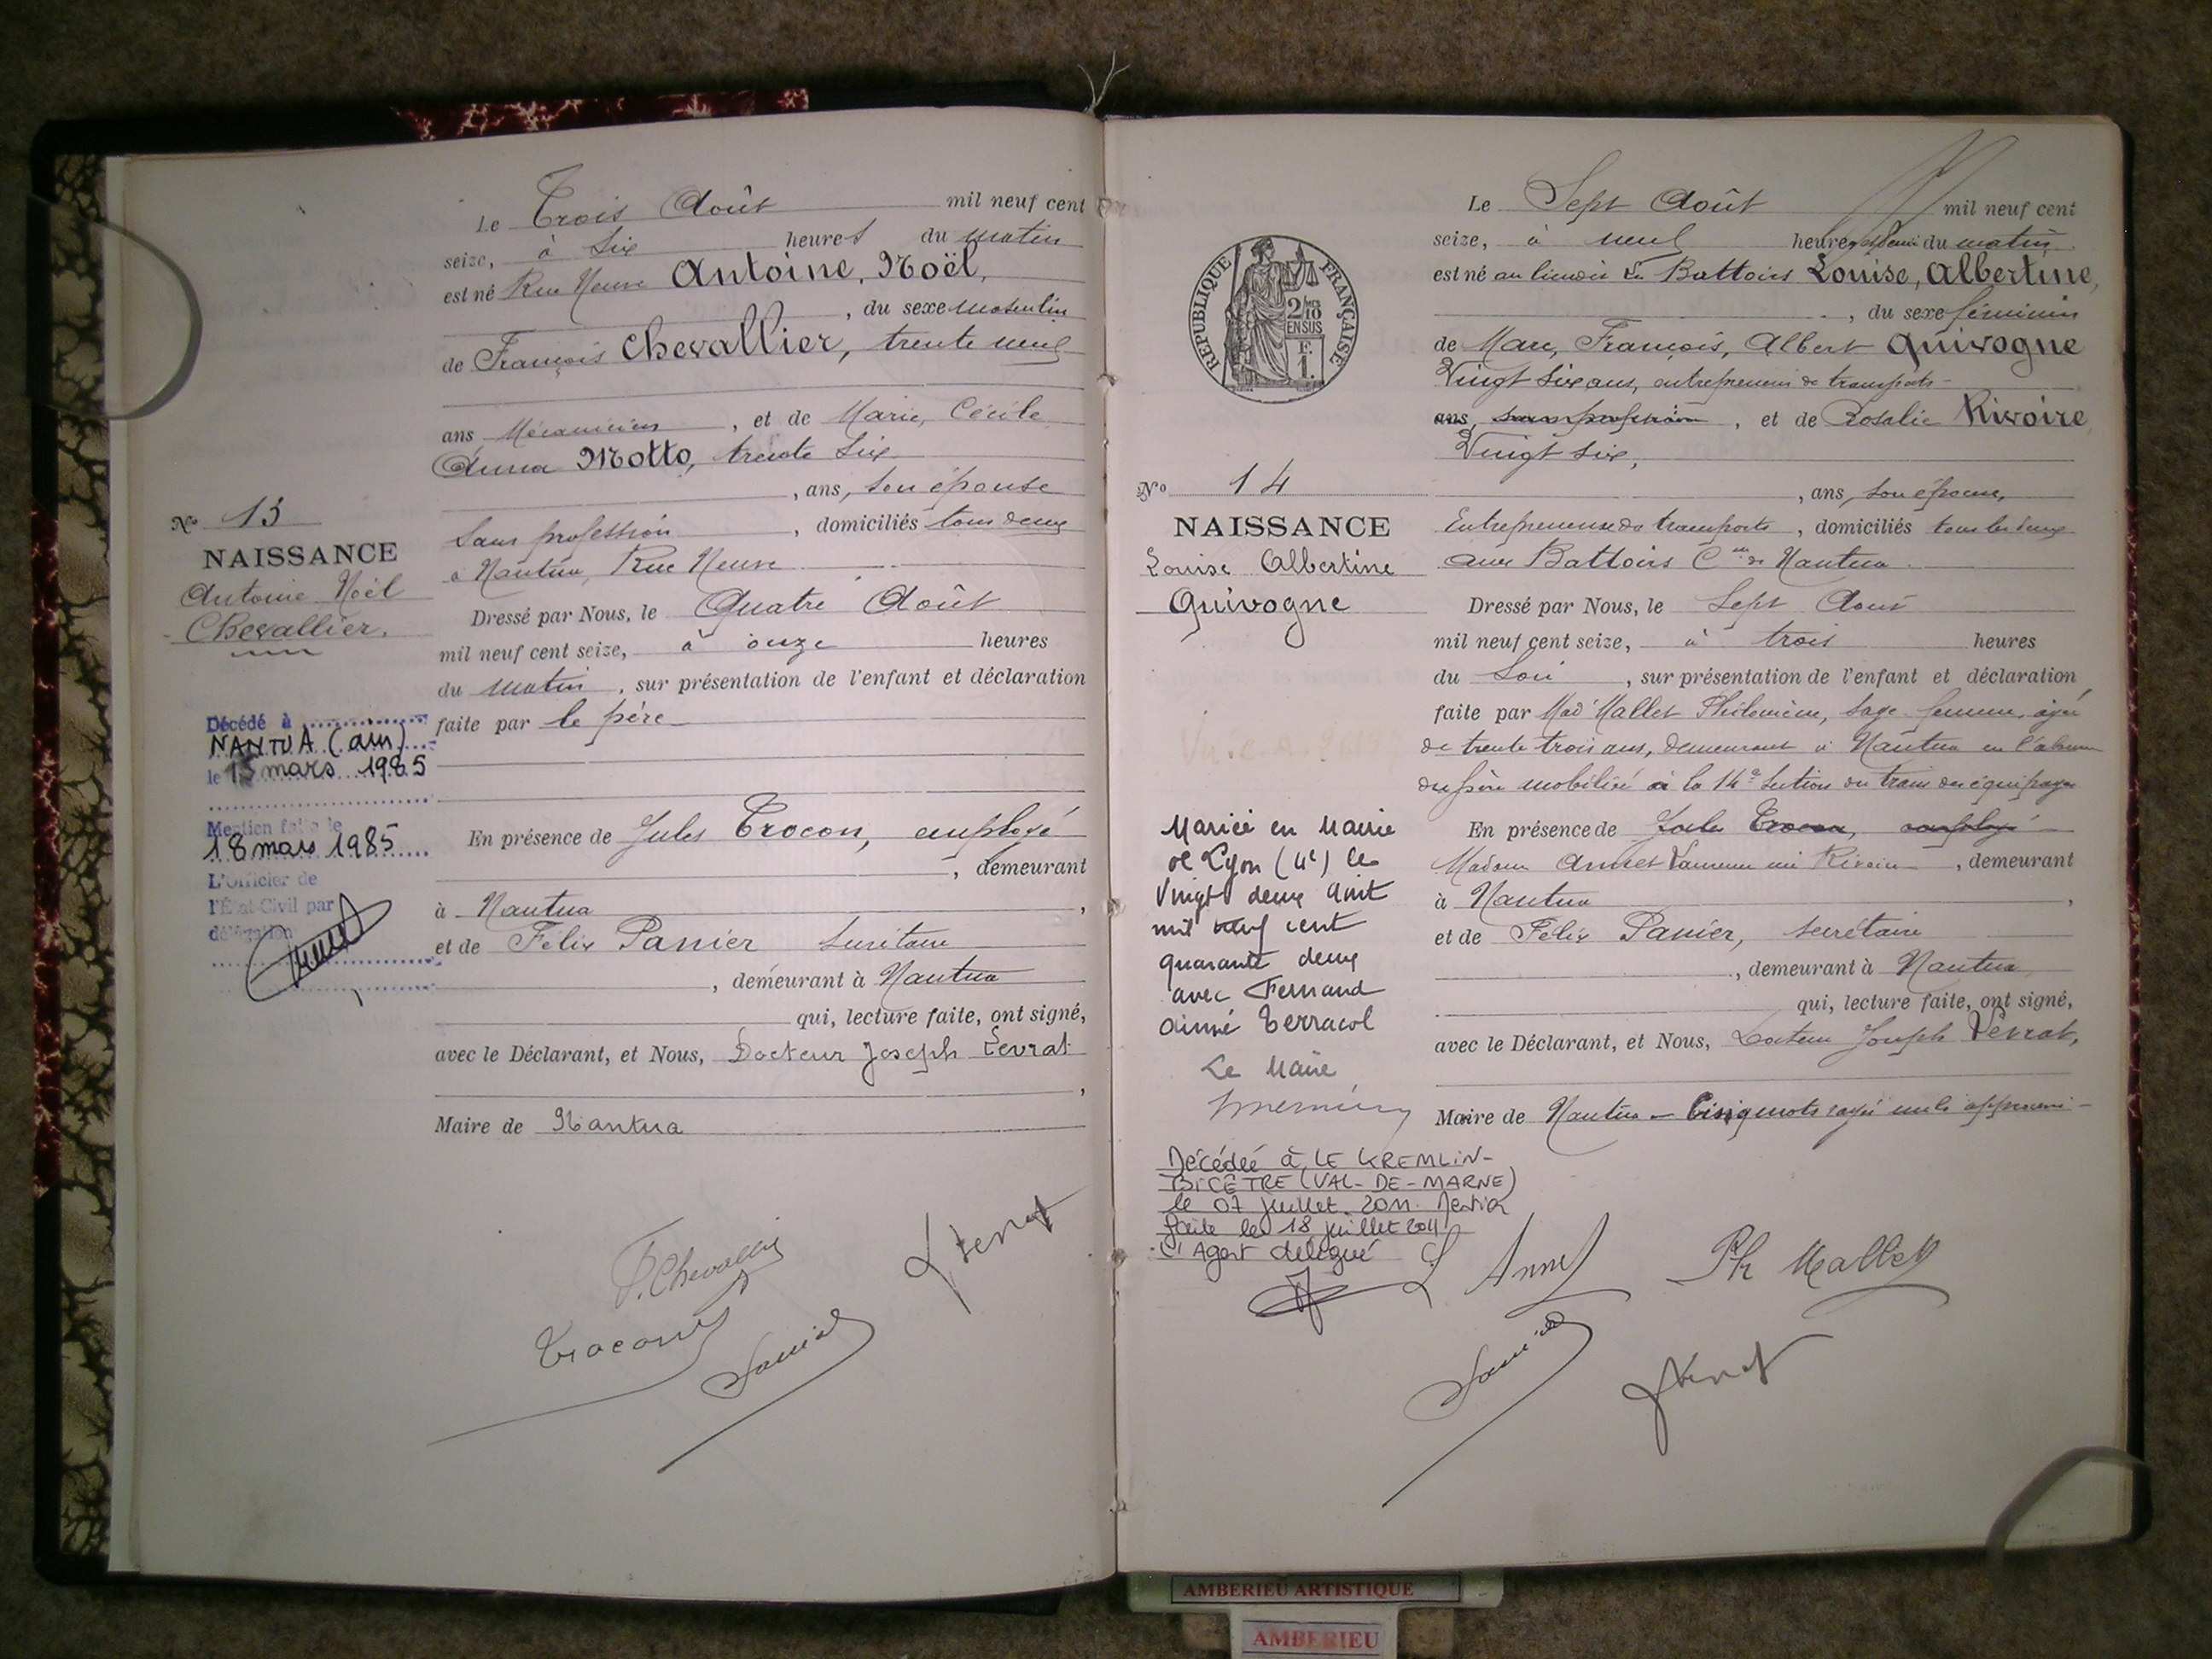 Le Trois Août mil neuf cent
seize, à six heures du matin
est né Rue Neuve Antoine, Noël,
, du sexe masculin
de François Chevallier, trente neuf
ans Mécanicien, et de Marie, Cécile
Anna Motto, trente six
, ans, son épouse
sans profession, domiciliés tous deux
à Nantua, Rue Neuve
Dressé par Nous, le Quatre Août
mil neuf cent seize, à onze heures
du matin, sur présentation de l'enfant et déclaration
faite par le père
En présence de Jules Trocon, employé
, demeurant
à Nantua,
et de Félix Panier secrétaire
, demeurant à Nantua
qui, lecture faite, ont signé,
avec le Déclarant, et Nous, Docteur Joseph Levrat
,
Maire de Nantua
F. Chevallier
Trocon
Panier
J Levrat
No 13
NAISSANCE
Antoine Noël
Chevallier.
Décédé à
NANTUA (Ain)
le 15 mars 1985
Mention faite le
18 mars 1985
L'Officier de
l'État-Civil par
délégation
Le Sept Août mil neuf cent
seize, à neuf heures et demi du matin
est né au lieudit les Battoirs Louise, Albertine,
, du sexe féminin
de Marc, François, Albert Quivogne
Vingt six ans, entrepreneur de transports
ans, sans profession, et de Rosalie Rivoire
Vingt six,
, ans, son épouse,
Entrepreneuse de transports, domiciliés tous les deux
aux Battoirs Cne de Nantua
Dressé par Nous, le Sept Août
mil neuf cent seize, à trois heures
du soir, sur présentation de l'enfant et déclaration
faite par Mad' Mallet Philomène, sage femme, âgée
de trente trois ans, demeurant à Nantua en l'absence
du père mobilisé à la 14e section du train des équipages
En présence de Jules Trocon, employé
Madame Annet née Rivoire, demeurant
à Nantua,
et de Félix Panier, secrétaire
, demeurant à Nantua
qui, lecture faite, ont signé,
avec le Déclarant, et Nous, Docteur Joseph Levrat,
Maire de Nantua - Cinq mots rayés nuls approuvé -
L Annet
Ph Mallet
Panier
J Levrat
REPUBLIQUE FRANÇAISE
2/10 EN SUS
F. 1.
No 14
NAISSANCE
Louise Albertine
Quivogne
Mariée en Mairie
de Lyon (4e) le
Vingt deux Août
mil neuf cent
quarante deux
avec Fernand
Aimé Terracol
Le Maire
Décédée à LE KREMLIN-
BICÊTRE (VAL-DE-MARNE)
le 07 juillet 2011. Mention
faite le 18 juillet 2011
L'Agent délégué
AMBERIEU ARTISTIQUE
AMBERIEU